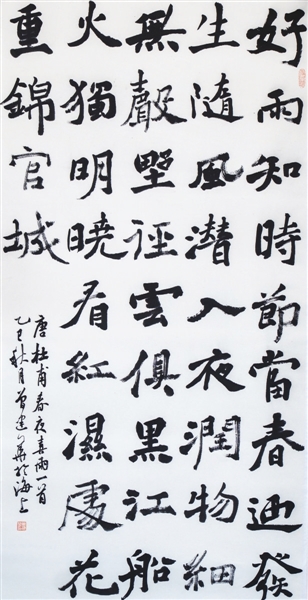 好雨知時節當春迺發
生隨風潛入夜潤物細
無聲墅徑雲俱黑江船
火獨明曉看紅濕處花
重錦官城
唐杜甫春夜喜雨一首
乙巳秋月曾建華於海上